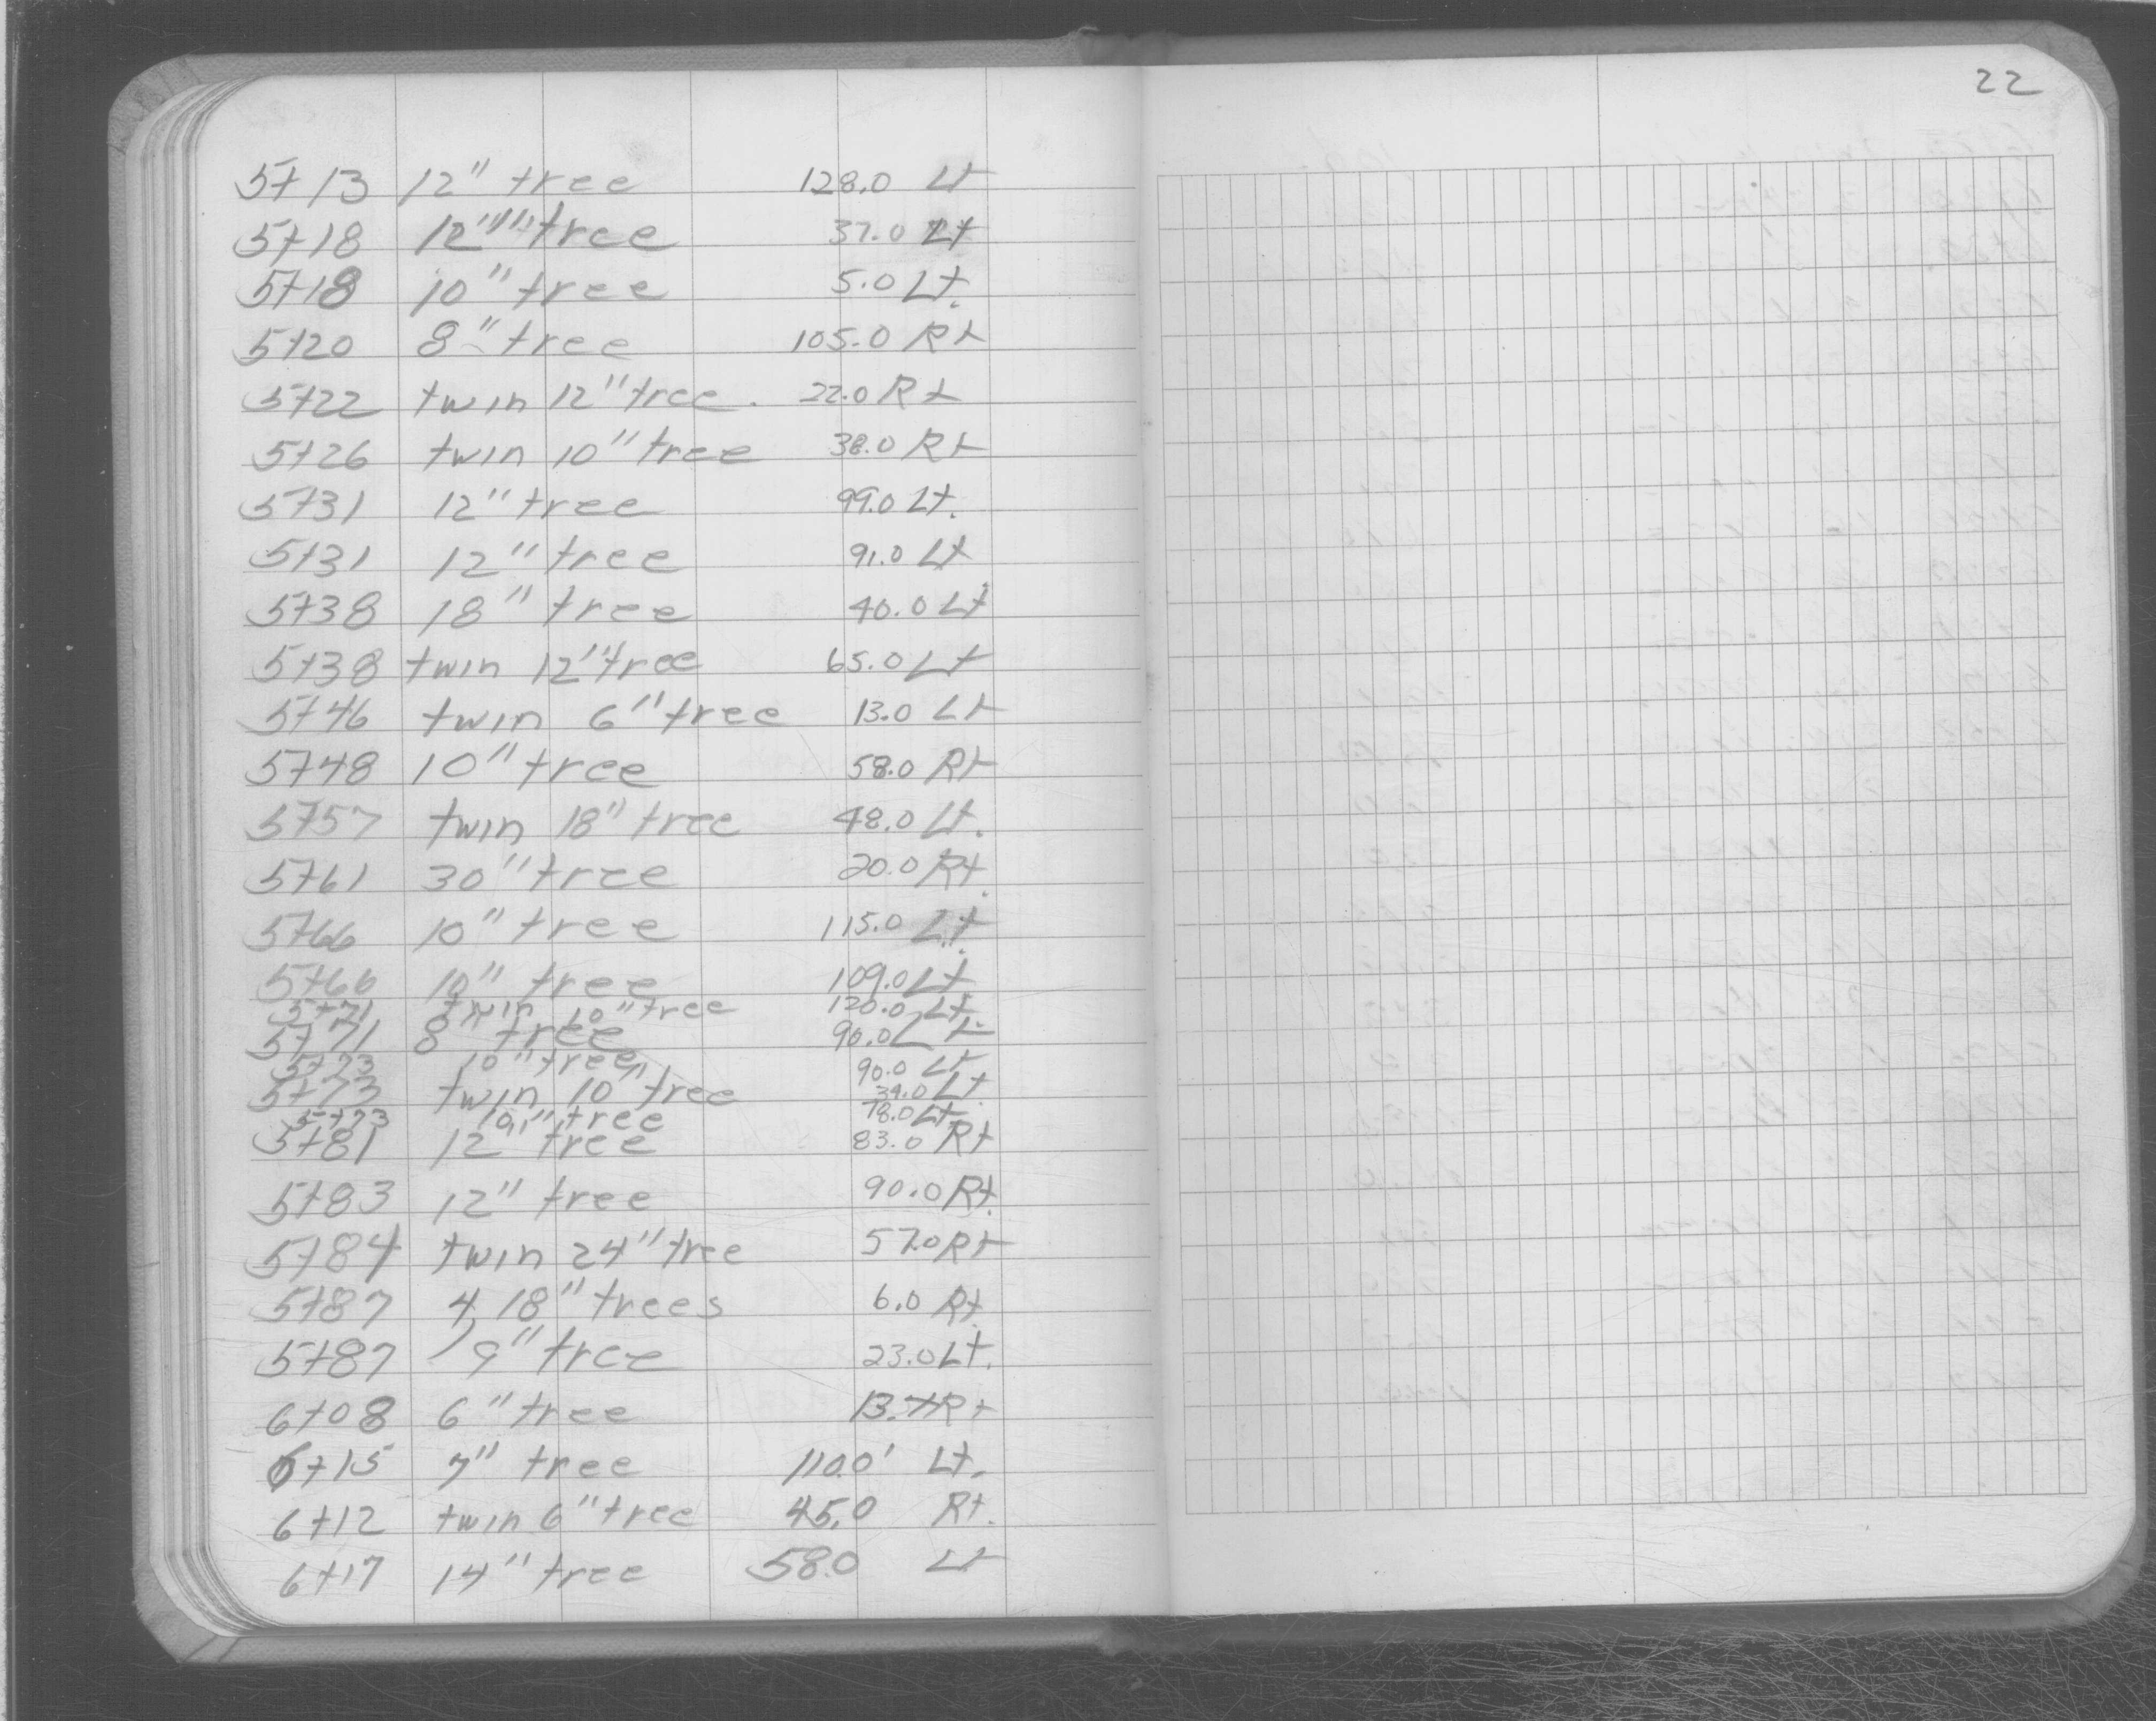 22
5+13 12" tree 128.0 Lt
5+18 12"" tree 37.0 Lt
5+18 10" tree 5.0 Lt.
5+20 8" tree 105.0 Rt
5+22 twin 12" tree. 22.0 Rt
5+26 twin 10" tree 38.0 Rt
5+31 12" tree 99.0 Lt.
5+31 12" tree 91.0 Lt
5+38 18" tree 40.0 Lt
5+38 twin 12" tree 65.0 Lt
5+46 twin 6" tree 13.0 Lt
5+48 10" tree 58.0 Rt
5+57 twin 18" tree 48.0 Lt.
5+61 30" tree 20.0 Rt.
5+66 10" tree 115.0 Lt
5+66 10" tree 109.0 Lt
5+71 twin 10" tree 120.0 Lt.
5+71 8" tree 96.0 Lt
5+73 10" tree 90.0 Lt
5+73 twin 10" tree 34.0 Lt.
5+73 10" tree 78.0 Lt
5+81 12" tree 83.0 Rt
5+83 12" tree 90.0 Rt.
5+84 twin 24" tree 57.0 Rt
5+87 4, 18" trees 6.0 Rt.
5+87 9" tree 23.0 Lt.
6+08 6" tree 13. Rt
6+15 7" tree 110.0' Lt.
6+12 twin 6" tree 45.0 Rt.
6+17 14" tree 58.0 Lt